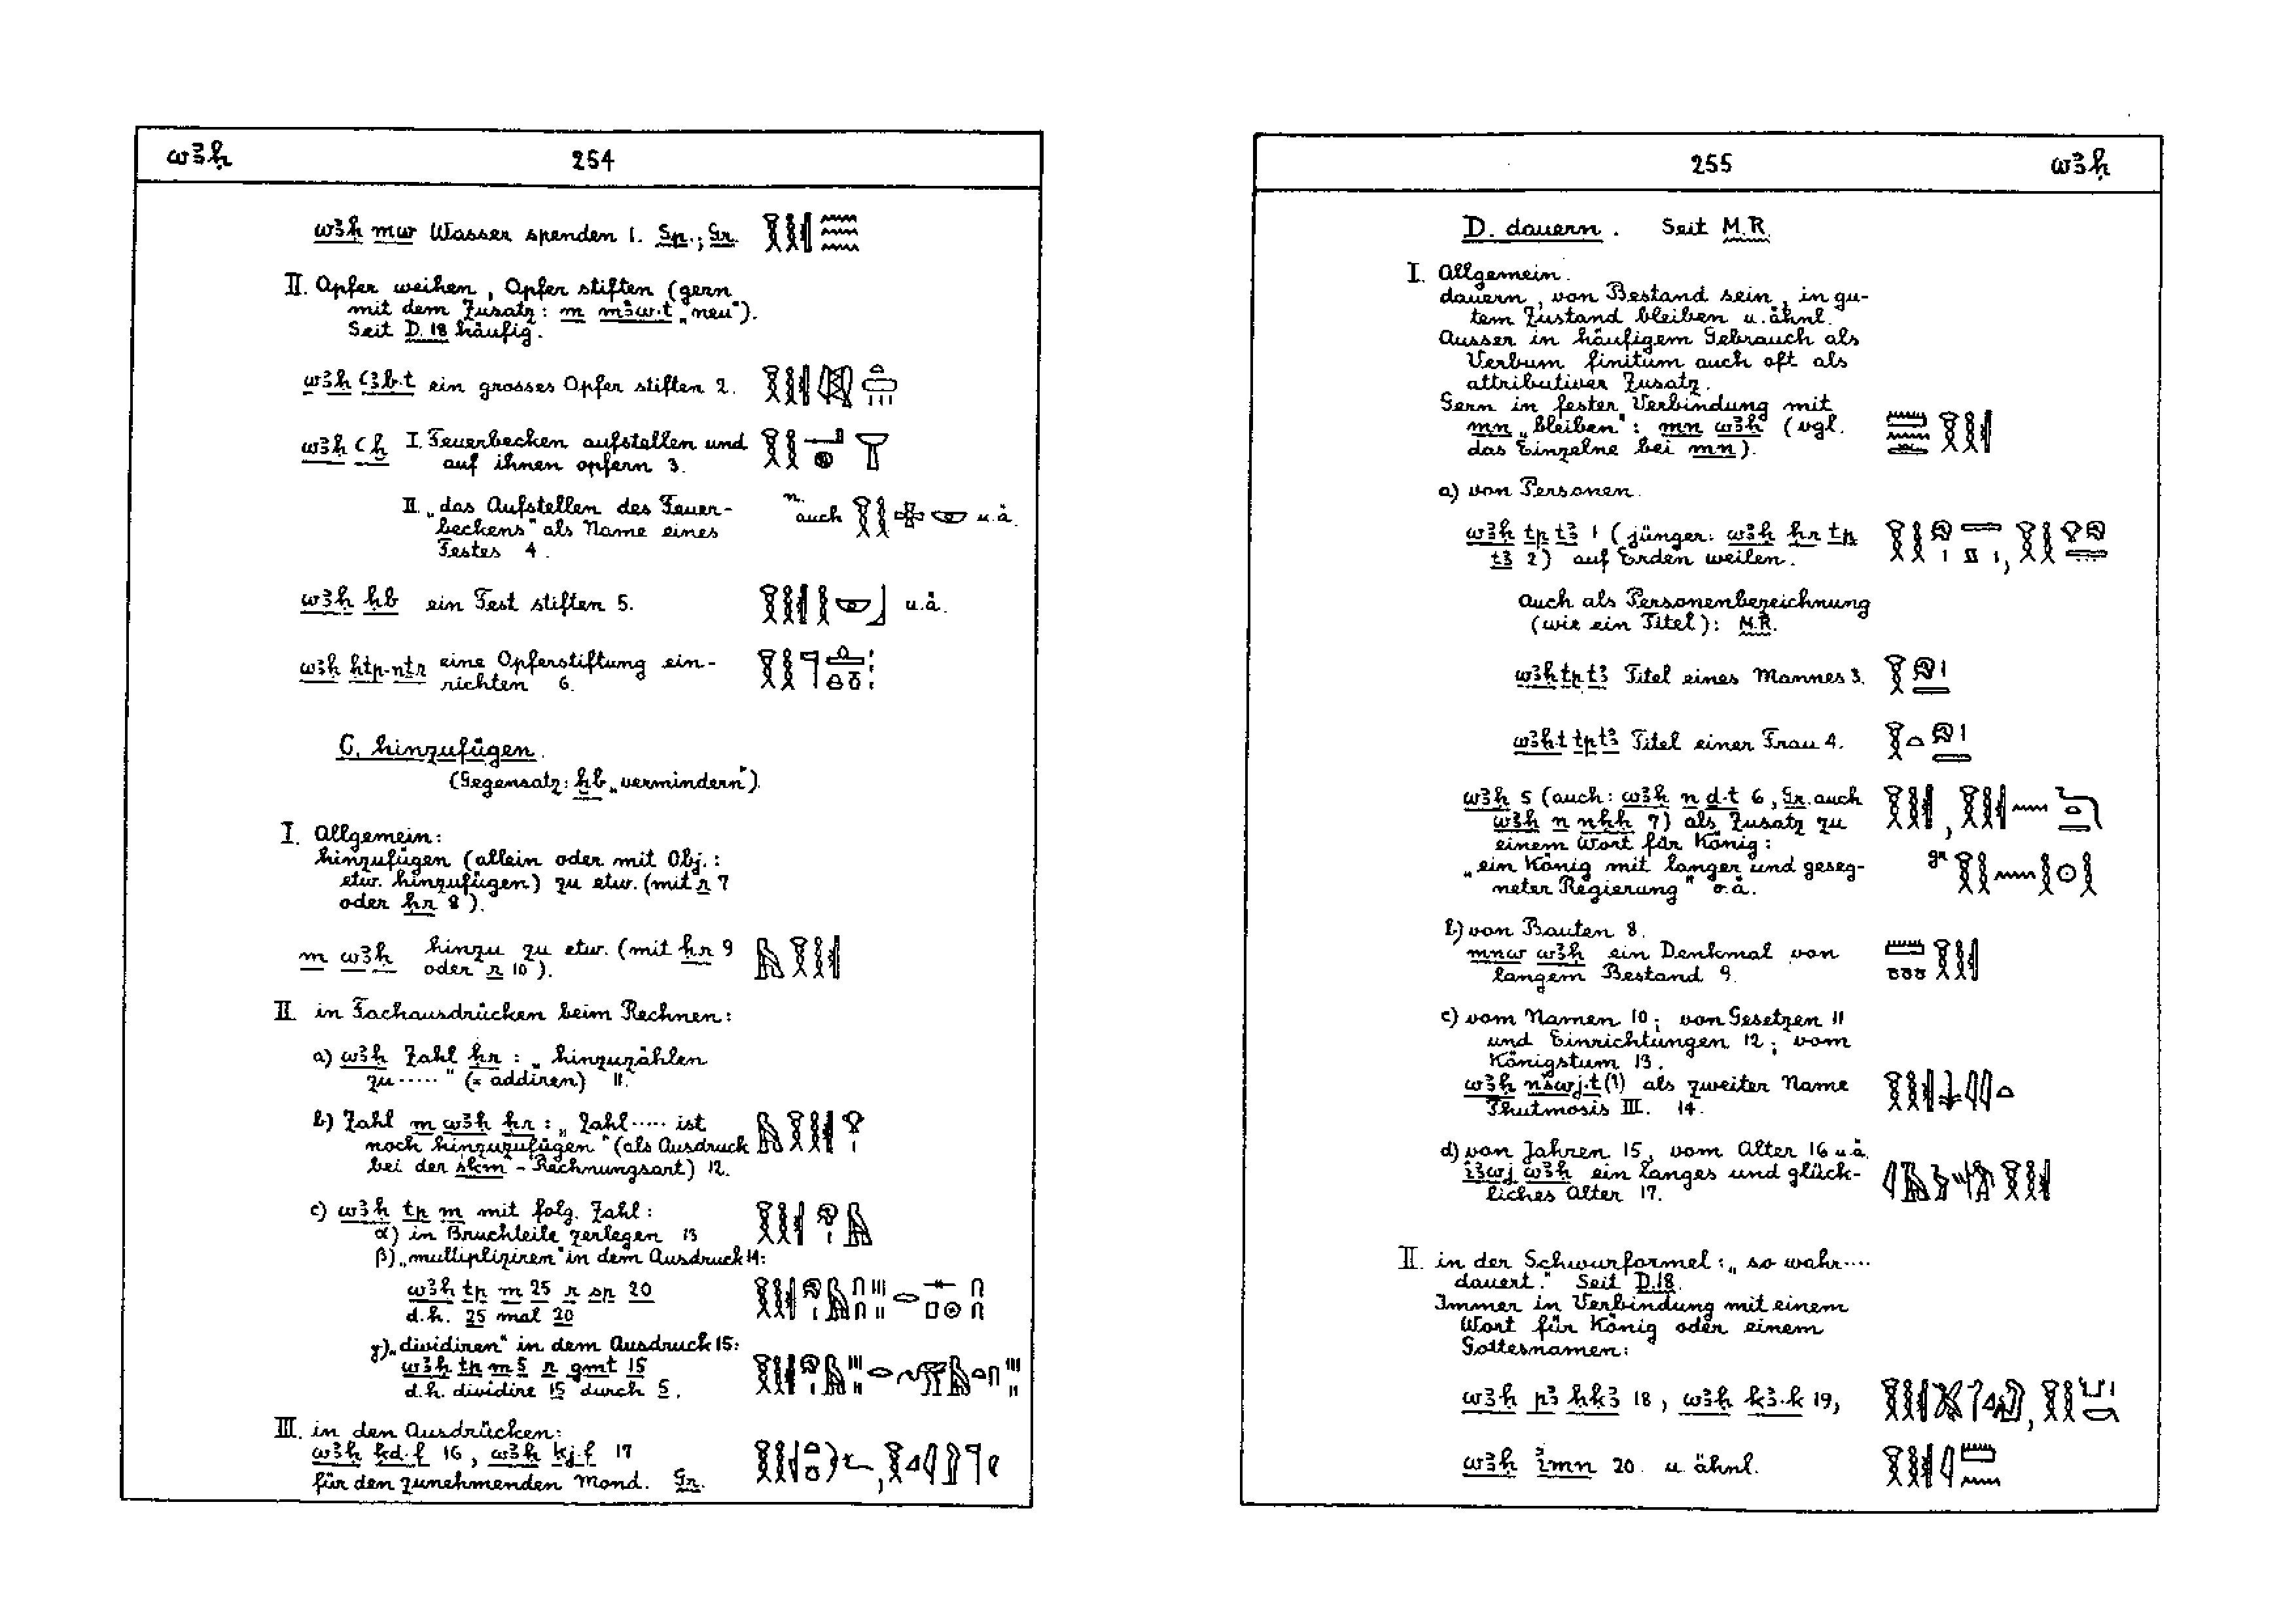 wꜣḥ
254
wꜣḥ mw Wasser spenden 1. Sp.; Gr.
II. Opfer weihen, Opfer stiften (gern
mit dem Zusatz: m mꜣw.t „neu“).
Seit D. 18 häufig.
wꜣḥ ꜥꜣb.t ein grosses Opfer stiften 2.
wꜣḥ ꜥḫ I. Feuerbecken aufstellen und
auf ihnen opfern 3.
II. „das Aufstellen des Feuer-
beckens“ als Name eines
Festes 4.
n.
auch u.ä.
wꜣḥ ḥb ein Fest stiften 5. u.ä.
wꜣḥ ḥtp-nṯr eine Opferstiftung ein-
richten 6.
C. hinzufügen.
(Gegensatz: ḫb „vermindern“).
I. Allgemein:
hinzufügen (allein oder mit Obj.:
etw. hinzufügen) zu etw. (mit r 7
oder ḥr 8).
m wꜣḥ hinzu zu etw. (mit ḥr 9
oder r 10).
II. in Fachausdrücken beim Rechnen:
a) wꜣḥ Zahl ḥr: „hinzuzählen
zu ....." (= addiren) 11.
b) Zahl m wꜣḥ ḥr: „Zahl ..... ist
noch hinzuzufügen“ (als Ausdruck
bei der skm-Rechnungsart) 12.
c) wꜣḥ tp m mit folg. Zahl:
α) in Bruchteile zerlegen 13
β) „multipliziren“ in dem Ausdruck 14:
wꜣḥ tp m 25 r sp 20
d.h. 25 mal 20
γ) „dividiren“ in dem Ausdruck 15:
wꜣḥ tp m 5 r gmt 15
d.h. dividire 15 durch 5.
III. in den Ausdrücken:
wꜣḥ ḳd.f 16, wꜣḥ ḳj.f 17
für den zunehmenden Mond. Gr.
255
wꜣḥ
D. dauern. Seit M.R.
I. Allgemein.
dauern, von Bestand sein, in gu-
tem Zustand bleiben u. ähnl.
Ausser in häufigem Gebrauch als
Verbum finitum auch oft als
attributiver Zusatz.
Gern in fester Verbindung mit
mn „bleiben“: mn wꜣḥ (vgl.
das Einzelne bei mn).
a) von Personen.
wꜣḥ tp tꜣ 1 (jünger: wꜣḥ ḥr tp
tꜣ 2) auf Erden weilen.
auch als Personenbezeichnung
(wie ein Titel): M.R.
wꜣḥ tp tꜣ Titel eines Mannes 3.
wꜣḥ.t tp tꜣ Titel einer Frau 4.
wꜣḥ 5 (auch: wꜣḥ n ḏ.t 6, Gr. auch
wꜣḥ n nḥḥ 7) als Zusatz zu
einem Wort für König:
„ein König mit langer und geseg-
neter Regierung“ o.ä.
gr
b) von Bauten 8.
mnw wꜣḥ ein Denkmal von
langem Bestand 9.
c) vom Namen 10; von Gesetzen 11
und Einrichtungen 12; vom
Königstum 13.
wꜣḥ nśwj.t (?) als zweiter Name
Thutmosis III. 14.
d) von Jahren 15, vom Alter 16 u.ä.
iꜣwj wꜣḥ ein langes und glück-
liches Alter 17.
II. in der Schwurformel: „so wahr ....
dauert.“ Seit D.18.
Immer in Verbindung mit einem
Wort für König oder einem
Gottesnamen:
wꜣḥ pꜣ ḥḳꜣ 18, wꜣḥ kꜣ.k 19,
wꜣḥ imn 20. u. ähnl.